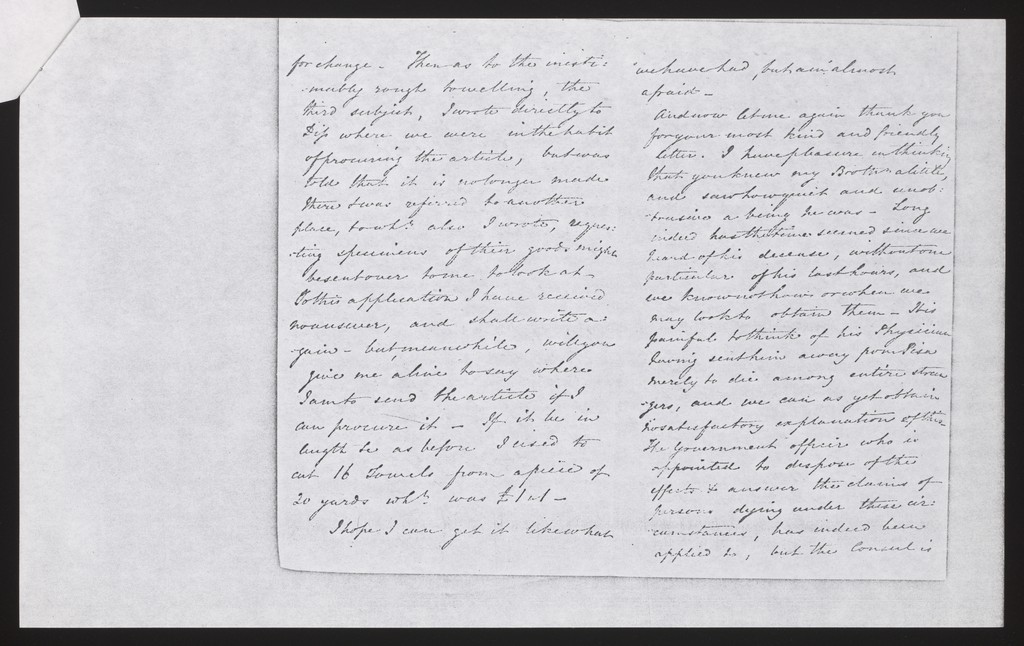 for change - Then as to the inesti:
-mably rough towelling, the
third subject, I wrote directly to
Diss where we were in the habit
of procuring the article, but was
told that it is no longer made
there & was referred to another
place, to whh. also I wrote, reques:
:ting specimens of their goods might
be sent over to me to look at -
To this application I have received
no answer, and shall write a:
:gain - but, meanwhile, will you
give me a line to say where
I am to send the article if I
can procure it - If it be in
length &c as before I used to
cut 16 Towels from a piece of
20 yards whh. was £1-1-
I hope I can get it like what
we have had, but am almost
afraid -
And now let me again thank you
for your most kind and friendly
letter. I have pleasure in thinking
that you knew my Brother a little,
and saw how quiet and unob:
:trusive a being he was - Long
indeed has the time seemed since we
heard of his decease, without one
particular of his last hours, and
we know not how or when we
may look to obtain them - It is
painful to think of his Physician
having sent him away from Pisa
merely to die among entire stran
:gers, and we can as yet obtain
no satisfactory explanation of this
The Government officer who is
appointed to dispose of the
effects & answer the claims of
persons dying under these cir:
:cumstances, has indeed been
applied to, but the Consul is